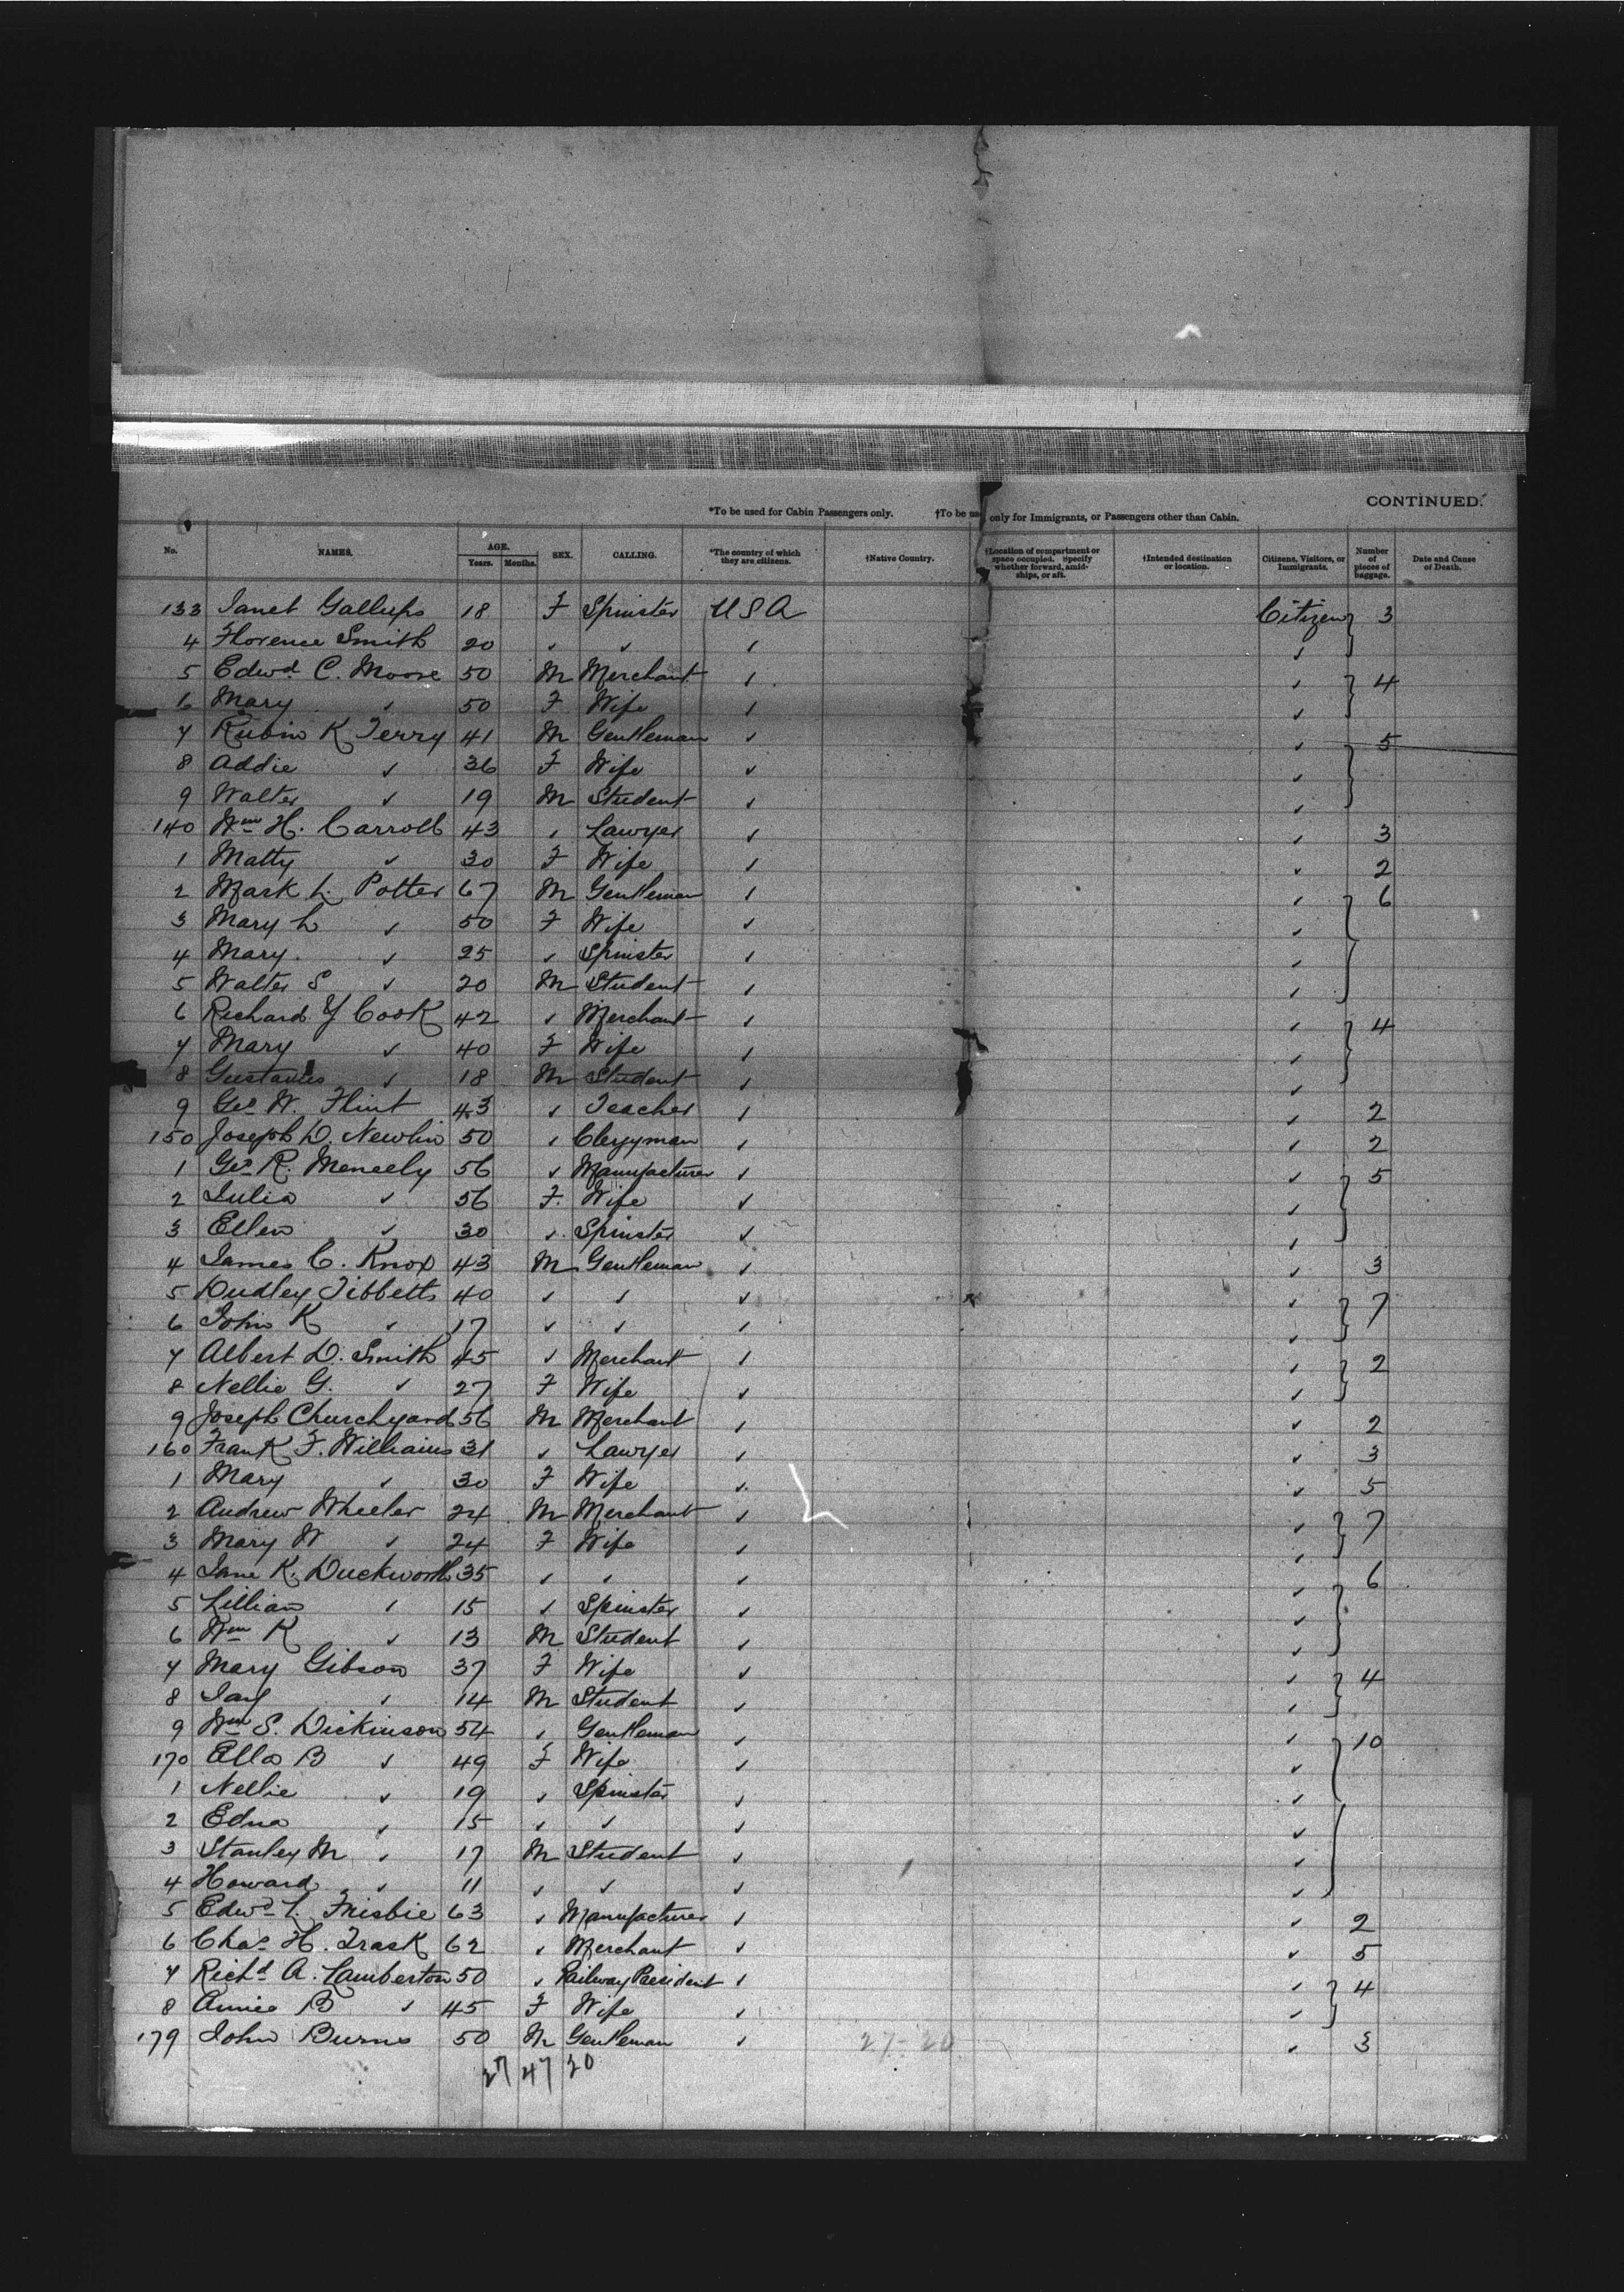 CONTINUED.
*To be used for Cabin Passengers only. †To be used only for Immigrants, or Passengers other than Cabin.
No. NAMES. AGE. Years. Months. SEX. CALLING. *The country of which they are citizens. †Native Country. †Location of compartment or space occupied. Specify whether forward, amid-ships, or aft. †Intended destination or location. Citizens, Visitors, or Immigrants. Number of pieces of baggage. Date and Cause of Death.
133 Janet Gallups 18 F Spinster U S A Citizen 3
4 Florence Smith 20 ✓ ✓ ✓ ✓
5 Edwd C. Moore 50 M Merchant ✓ ✓ 4
6 Mary ✓ 50 F Wife ✓ ✓
7 Rubin K Terry 41 M Gentleman ✓ ✓ 5
8 Addie ✓ 36 F Wife ✓ ✓
9 Walter ✓ 19 M Student ✓ ✓
140 Wm H. Carroll 43 ✓ Lawyer ✓ ✓ 3
1 Matty ✓ 30 F Wife ✓ ✓ 2
2 Mark L. Potter 67 M Gentleman ✓ ✓ 6
3 Mary L ✓ 50 F Wife ✓ ✓
4 Mary ✓ 25 ✓ Spinster ✓ ✓
5 Walter S ✓ 20 M Student ✓ ✓
6 Richard Y Cook 42 ✓ Merchant ✓ ✓ 4
7 Mary ✓ 40 F Wife ✓ ✓
8 Gustavus ✓ 18 M Student ✓ ✓
9 Geo W. Flint 43 ✓ Teacher ✓ ✓ 2
150 Joseph D. Newlin 50 ✓ Clergyman ✓ ✓ 2
1 Geo R. Meneely 56 ✓ Manufacturer ✓ ✓ 5
2 Julia ✓ 56 F. Wife ✓ ✓
3 Ellen ✓ 30 ✓ Spinster ✓ ✓
4 James C. Knox 43 M Gentleman ✓ ✓ 3
5 Dudley Tibbetts 40 ✓ ✓ ✓ ✓ 7
6 John K ✓ 17 ✓ ✓ ✓ ✓
7 Albert D. Smith 45 ✓ Merchant ✓ ✓ 2
8 Nellie G. ✓ 27 F Wife ✓ ✓
9 Joseph Churchyard 56 M Merchant ✓ ✓ 2
160 Frank F. Williams 31 ✓ Lawyer ✓ ✓ 3
1 Mary ✓ 30 F Wife ✓ ✓ 5
2 Andrew Wheeler 24 M Merchant ✓ ✓ 7
3 Mary W ✓ 24 F Wife ✓ ✓
4 Jane K. Duckworth 35 ✓ ✓ ✓ ✓ 6
5 Lillian ✓ 15 ✓ Spinster ✓ ✓
6 Wm K ✓ 13 M Student ✓ ✓
7 Mary Gibson 37 F Wife ✓ ✓ 4
8 Jay ✓ 14 M Student ✓ ✓
9 Wm S. Dickinson 54 ✓ Gentleman ✓ ✓ 10
170 Ella B ✓ 49 F Wife ✓ ✓
1 Nellie ✓ 19 ✓ Spinster ✓ ✓
2 Edna ✓ 15 ✓ ✓ ✓ ✓
3 Stanley M ✓ 17 M Student ✓ ✓
4 Howard ✓ 11 ✓ ✓ ✓ ✓
5 Edwd L. Frisbie 63 ✓ Manufacturer ✓ ✓ 2
6 Chas H. Trask 62 ✓ Merchant ✓ ✓ 5
7 Richd A. Lamberton 50 ✓ Railway President ✓ ✓ 4
8 Annie B ✓ 45 F Wife ✓ ✓
179 John Burns 50 M Gentleman ✓ 27-20 ✓ 3
27 47 20